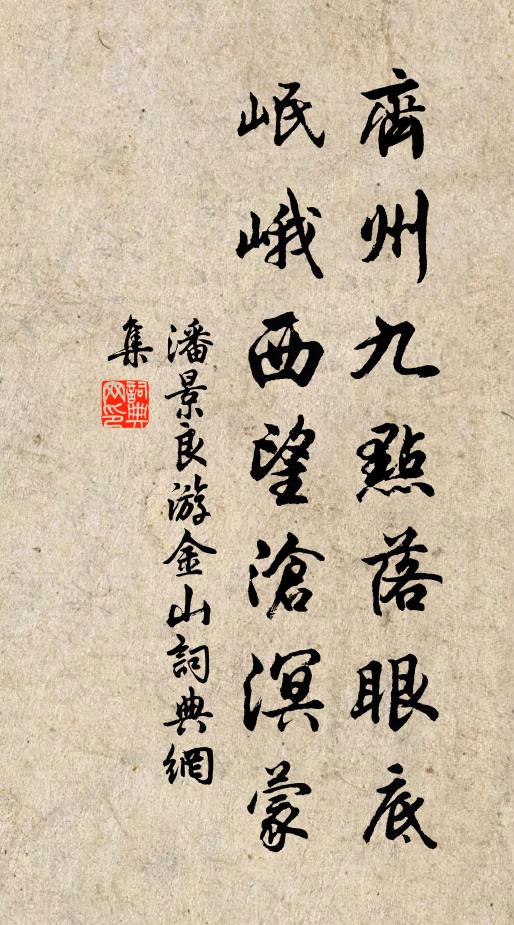 齊州九點落眼底
岷峨西望滄溟蒙
潘景良游金山詞典網
集
詞典網印